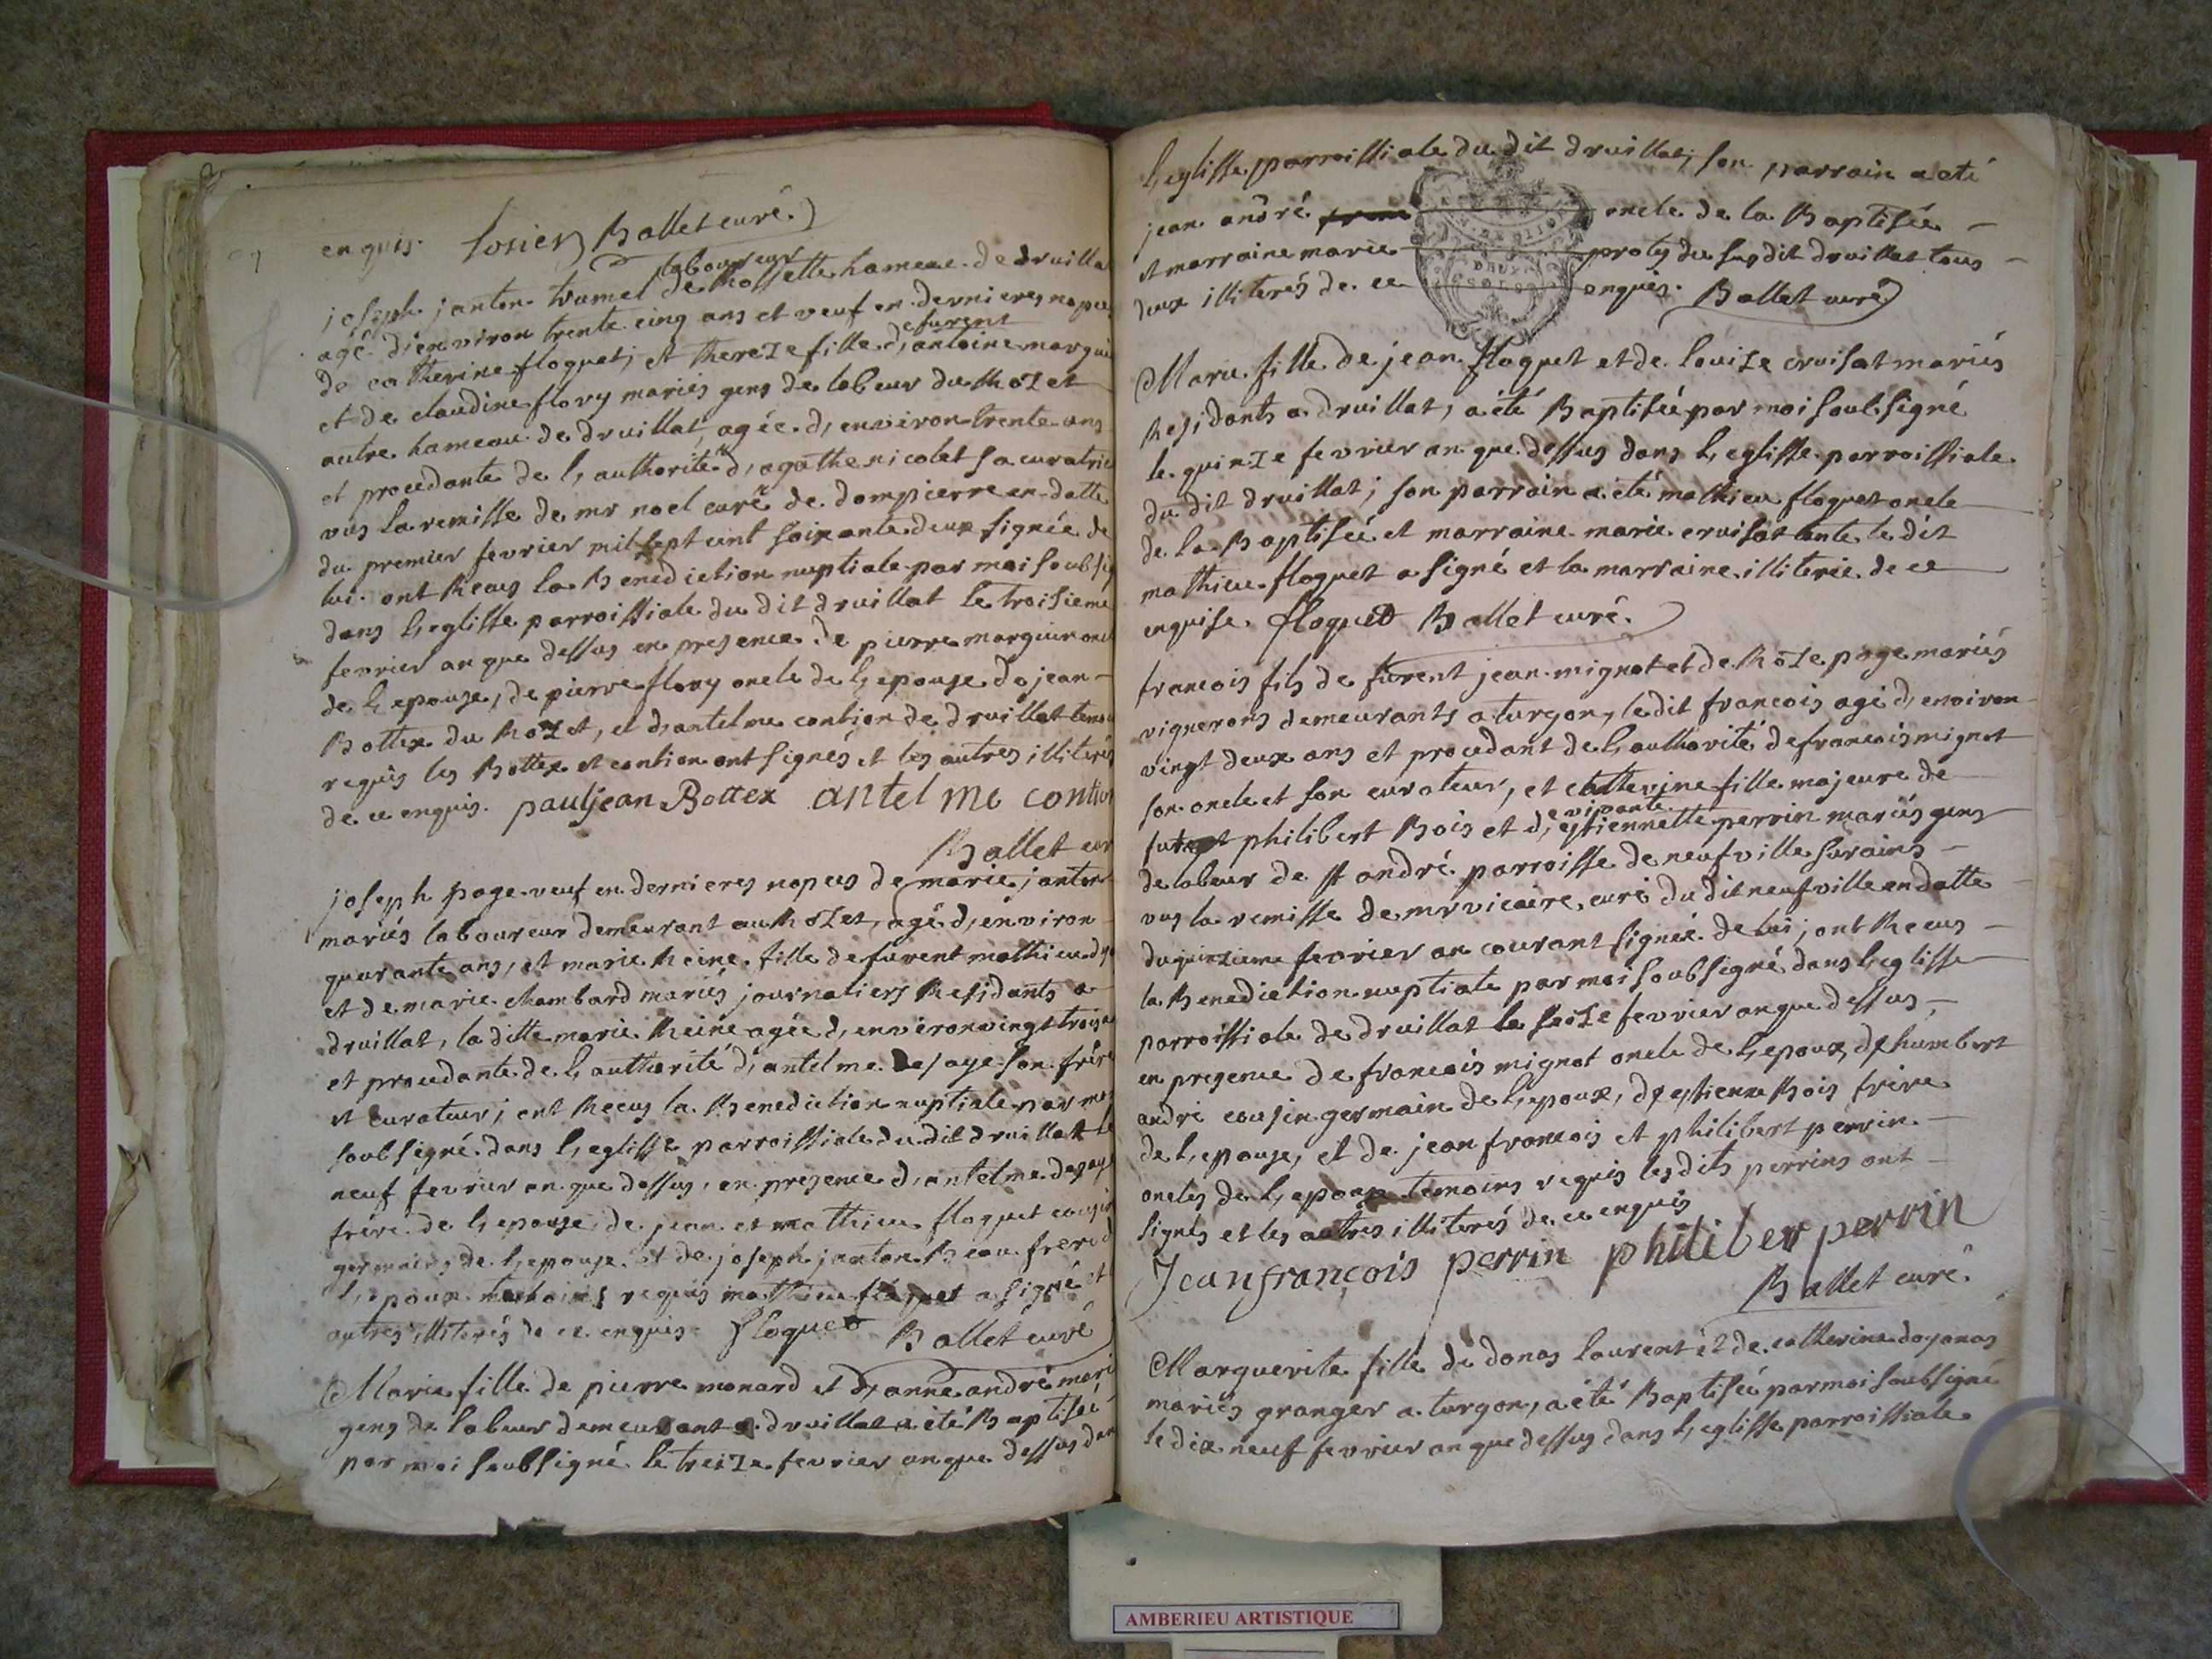 enquis. Losier Ballet curé.
laboureur
joseph janton trumel de Rossette hameau de druilla
agé d,environ trente cinq ans et veuf en dernieres nopces
de catherine floquet; et thereze fille d,antoine
defurent
et de claudine flory mariés gens de labeur du Rozet
autre hameau de druillat, agée d, environ trente ans
et procedante de l, authorité d, agathe nicolet sa curatrice
vus la remisse de mr noel curé de dompierre en datte
du premier fevrier mil sept cent soixante deux signée de
lui. ont Receus la Benediction nuptiale par moi soubsig
dans l,eglisse parroissiale du dit druillat le troisieme
fevrier an que dessus en presence de pierre marguin oncle
de l, epouse, de pierre flory oncle de l, epouse do jean
Bottex du Rozet, et d,antelme contion de druillat
requis les Bottex et contion ont signés et les autres illiterés
de ce enquis. paul jean Bottex antel me contion
Ballet cur
joseph page veuf en dernieres nopces de marie janton
mariés laboureur demeurant au Rozet, agé d, environ
quarante ans, et marie Reine fille de furent mathieu
et de marie chambard mariés journaliers Residants a
druillat, la ditte marie Reine agée d, environ vingt trois
et procedante de l, authorité d, antelme desaye son frère
et curateur; ont Receus la Benediction nuptiale par moi
soubsigné dans l, eglisse parroissiale du dit druillat le
neuf fevrier an que dessus, en presence d, antelme desaye
frère de l, epouse, de jean et mathieu floquet cousin
germains de l, epouse et de joseph janton Beau frere d
l, epoux temoins requis mathieu floquet a signé et
autres illiterés de ce enquis. floquet Ballet curé
Marie fille de pierre monard et d, anne andré mari
gens de labeur demeurant a druillat a été Baptisée
par moi soubsigné le treize fevrier an que dessus dan
l, eglisse parroissiale du dit druillat; son parrain a eté
jean andré oncle de la Baptisée
et marraine marie protes du susdit druillat tous
deux illiterés de ce enquis. Ballet curé
Marie fille de jean floquet et de louize cruisat mariés
Residants a druillat, a été Baptisée par moi soubsigné
le quinze fevrier an que dessus dans l, eglisse parroissiale
du dit druillat; son parrain a été mathieu floquet oncle
de la Baptisée et marraine marie cruisat tante le dit
mathieu floquet a signé et la marraine illiterée de ce
enquise. floquet Ballet curé.
francois fils de furent jean mignot et de Roze page mariés
vignerons demeurants a turgon, ledit francois agé d, environ
vingt deux ans et procedant de l, authorité de francois mignot
son oncle et son curateur, et catterine fille majeure de
vivante
furent philibert Bois et d, estiennette perrin mariés gens
de labeur de st andré parroisse de neufville sur ains
vus la remisse de mr vicaire, curé du dit neufville en datte
du quinzieme fevrier an courant signée de lui; ont Receus
la Benediction nuptiale par moi soubsigné dans l, eglisse
parroissiale de druillat le seize fevrier an que dessus,
en presence de francois mignot oncle de l, epoux, d, humbert
andré cousin germain de l, epoux, d, estienne Bois frère
de l, epouse, et de jean francois et philibert perrin
oncles de l, epouse temoins requis les dits perrins ont
signés et les autres illiterés de ce enquis
Jeanfrançois perrin philiber perrin
Ballet curé.
Marguerite fille de donas laurent et de catherine doyanas
mariés granger a turgon, a été Baptisée par moi soubsigné
le dix neuf fevrier an que dessus dans l, eglisse parroissiale
AMBERIEU ARTISTIQUE